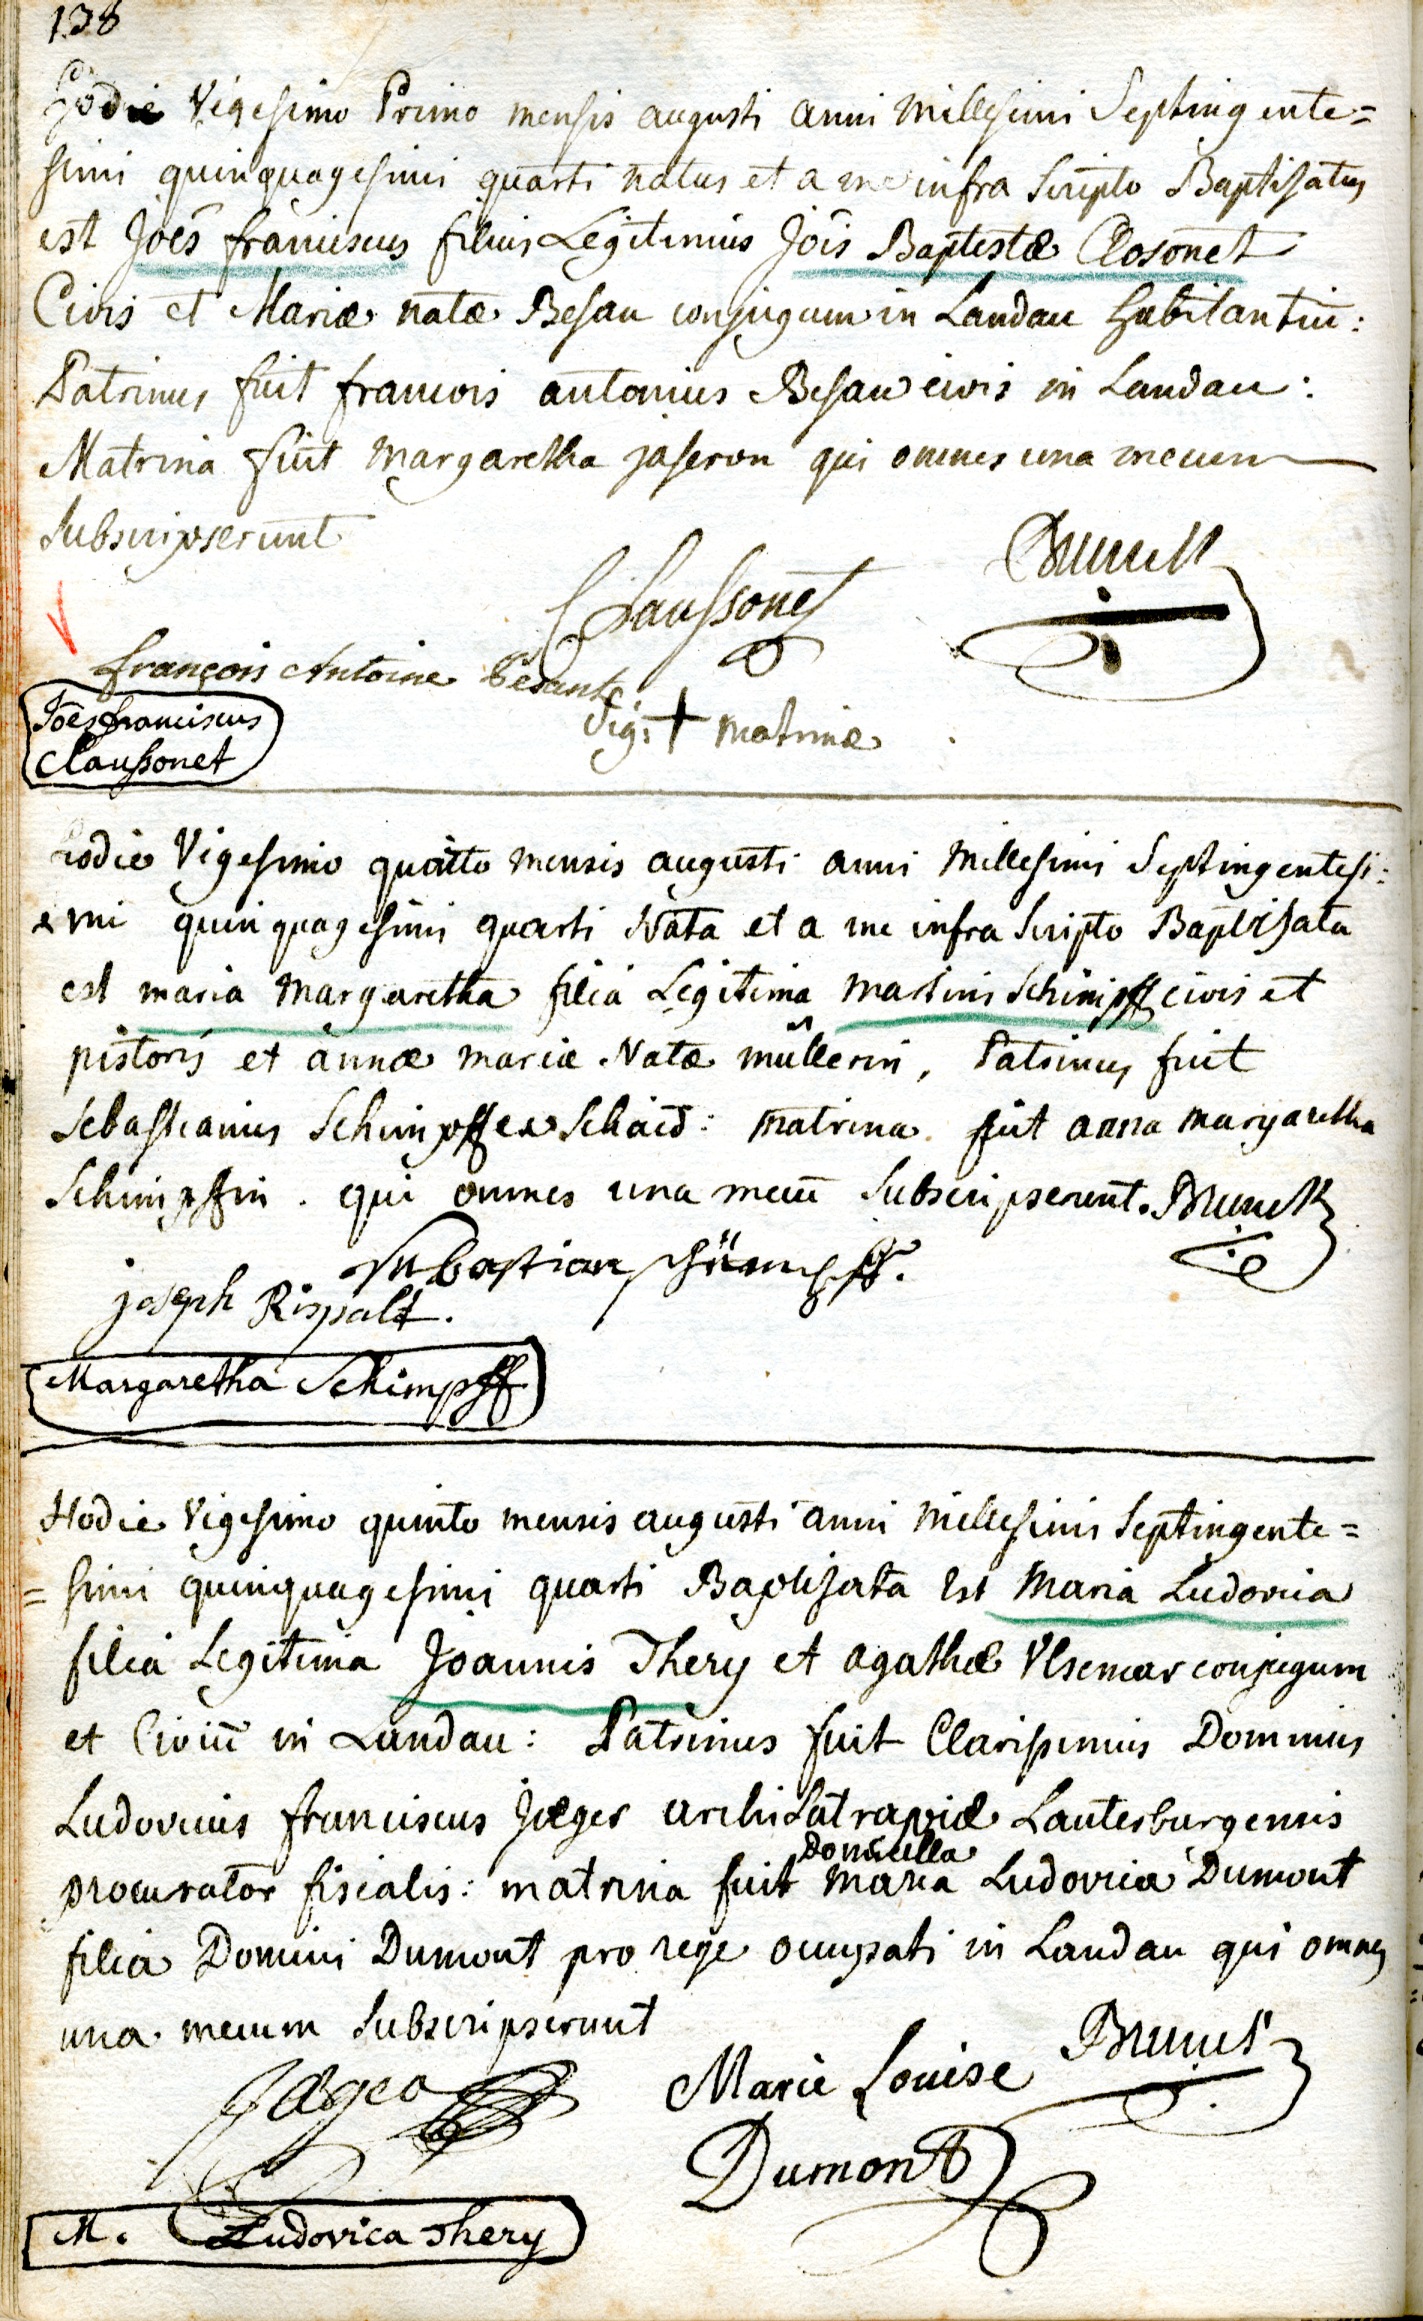 138
Hodie Vigesimo Primo mensis augusti anni Millesimi Septingente=
simi quinquagesimi quarti natus et a me infra Scripto Baptisatus
est Joēs franciscus filius Legitimus Jōis Baptistæ Closonet
Civis et Mariæ natæ Besau conjugum in Landau habitantiū:
Patrinus fuit francois antonius Besau civis in Landau:
Matrina fuit Margaretha jaseron qui omnes una mecum
Subscripserunt
Claussonet
Brunck
françois Antoine Besant
Sig: + matrinæ
Joēs franciscus
Claussonet
hodie Vigesimo quarto mensis augusti anni Millesimi Septingentesi=
mi quinquagesimi quarti Nata et a me infra Scripto Baptisata
est maria Margaretha filia Legitima Martini Schimpff civis et
pistoris et annæ mariæ Natæ müllerin, Patrinus fuit
Sebastianus Schimpff ex Schaid: matrina fuit anna margaretha
Schimpffin. qui omnes una mecū Subscripserunt. Brunck
Sebastian schimpff.
joseph Rispalt.
Margaretha Schimpff
Hodie Vigesimo quinto mensis augusti anni Millesimi Septingente=
=simi quinquagesimi quarti Baptisata Est Maria Ludovica
filia Legitima Joannis Thery et agathæ Ulsemar conjugum
et Civiū in Landau: Patrinus fuit Clarissimus Dominus
Ludovicus franciscus Jæger archiSatrapiæ Lauterburgensis
Domicella
procurator fiscalis: matrina fuit Maria Ludovica Dumont
filia Domini Dumont pro rege occupati in Landau qui omnes
una mecum Subscripserunt
Brunck
Jæger
Marie Louise
Dumont
M. Ludovica Thery